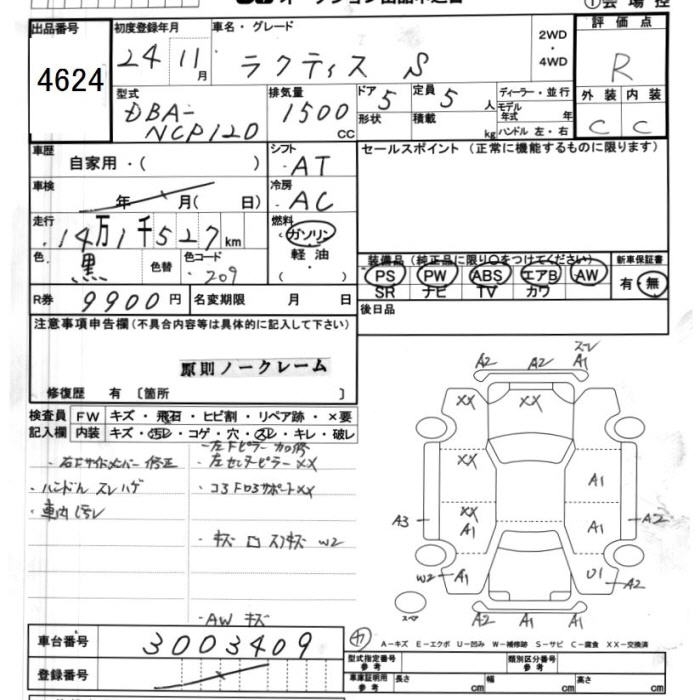 出品番号
4624
初度登録年月
24 11月
車名・グレード
ラクティス S
2WD
・
4WD
評価点
R
外装 内装
C C
型式
DBA-
NCP120
排気量
1500
CC
ドア 5
定員 5 人
形状
積載
kg
ディーラー・並行
モデル
年式 年
ハンドル 左・右
車歴
自家用・( )
シフト
AT
セールスポイント(正常に機能するものに限ります)
車検
年 月( 日)
冷房
AC
走行
14万1千527km
燃料
ガソリン
軽油
色
黒
色替
色コード
209
装備品(純正品に限り○をつけてください)
新車保証書
PS PW ABS エアB AW
有・無
SR ナビ TV カワ
R券 9900円
名変期限 月 日
後日品
注意事項申告欄(不具合内容等は具体的に記入して下さい)
原則ノークレーム
修復歴 有 〔箇所 〕
検査員
記入欄
FW キズ・飛石・ヒビ割・リペア跡・×要
内装 キズ・汚レ・コゲ・穴・スレ・キレ・破レ
・右Fサイドメンバー修正
・ハンドル スレ ハゲ
・車内汚レ
・左センターピラーXX
・コアサポートXX
・AW キズ
A2 A2 スレ A1
XX XX
XX
A1
XX
A1 A1
A3 A2
W2 A1 U1 A2
スペア
A2 A1 A1
A-キズ E-エクボ U-凹み W-補修跡 S-サビ C-腐食 XX-交換済
車台番号 3003409
登録番号
型式指定番号
参考
類別区分番号
参考
車庫証明用
参考
長さ cm 幅 cm 高さ cm